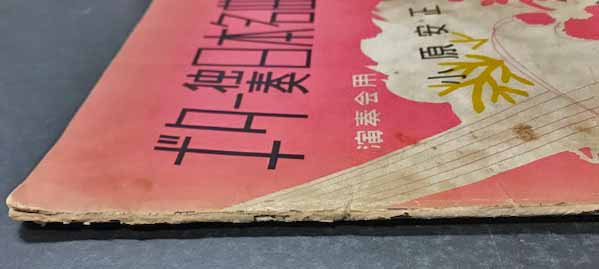 ギター独奏日本名
演奏会用
小原安正